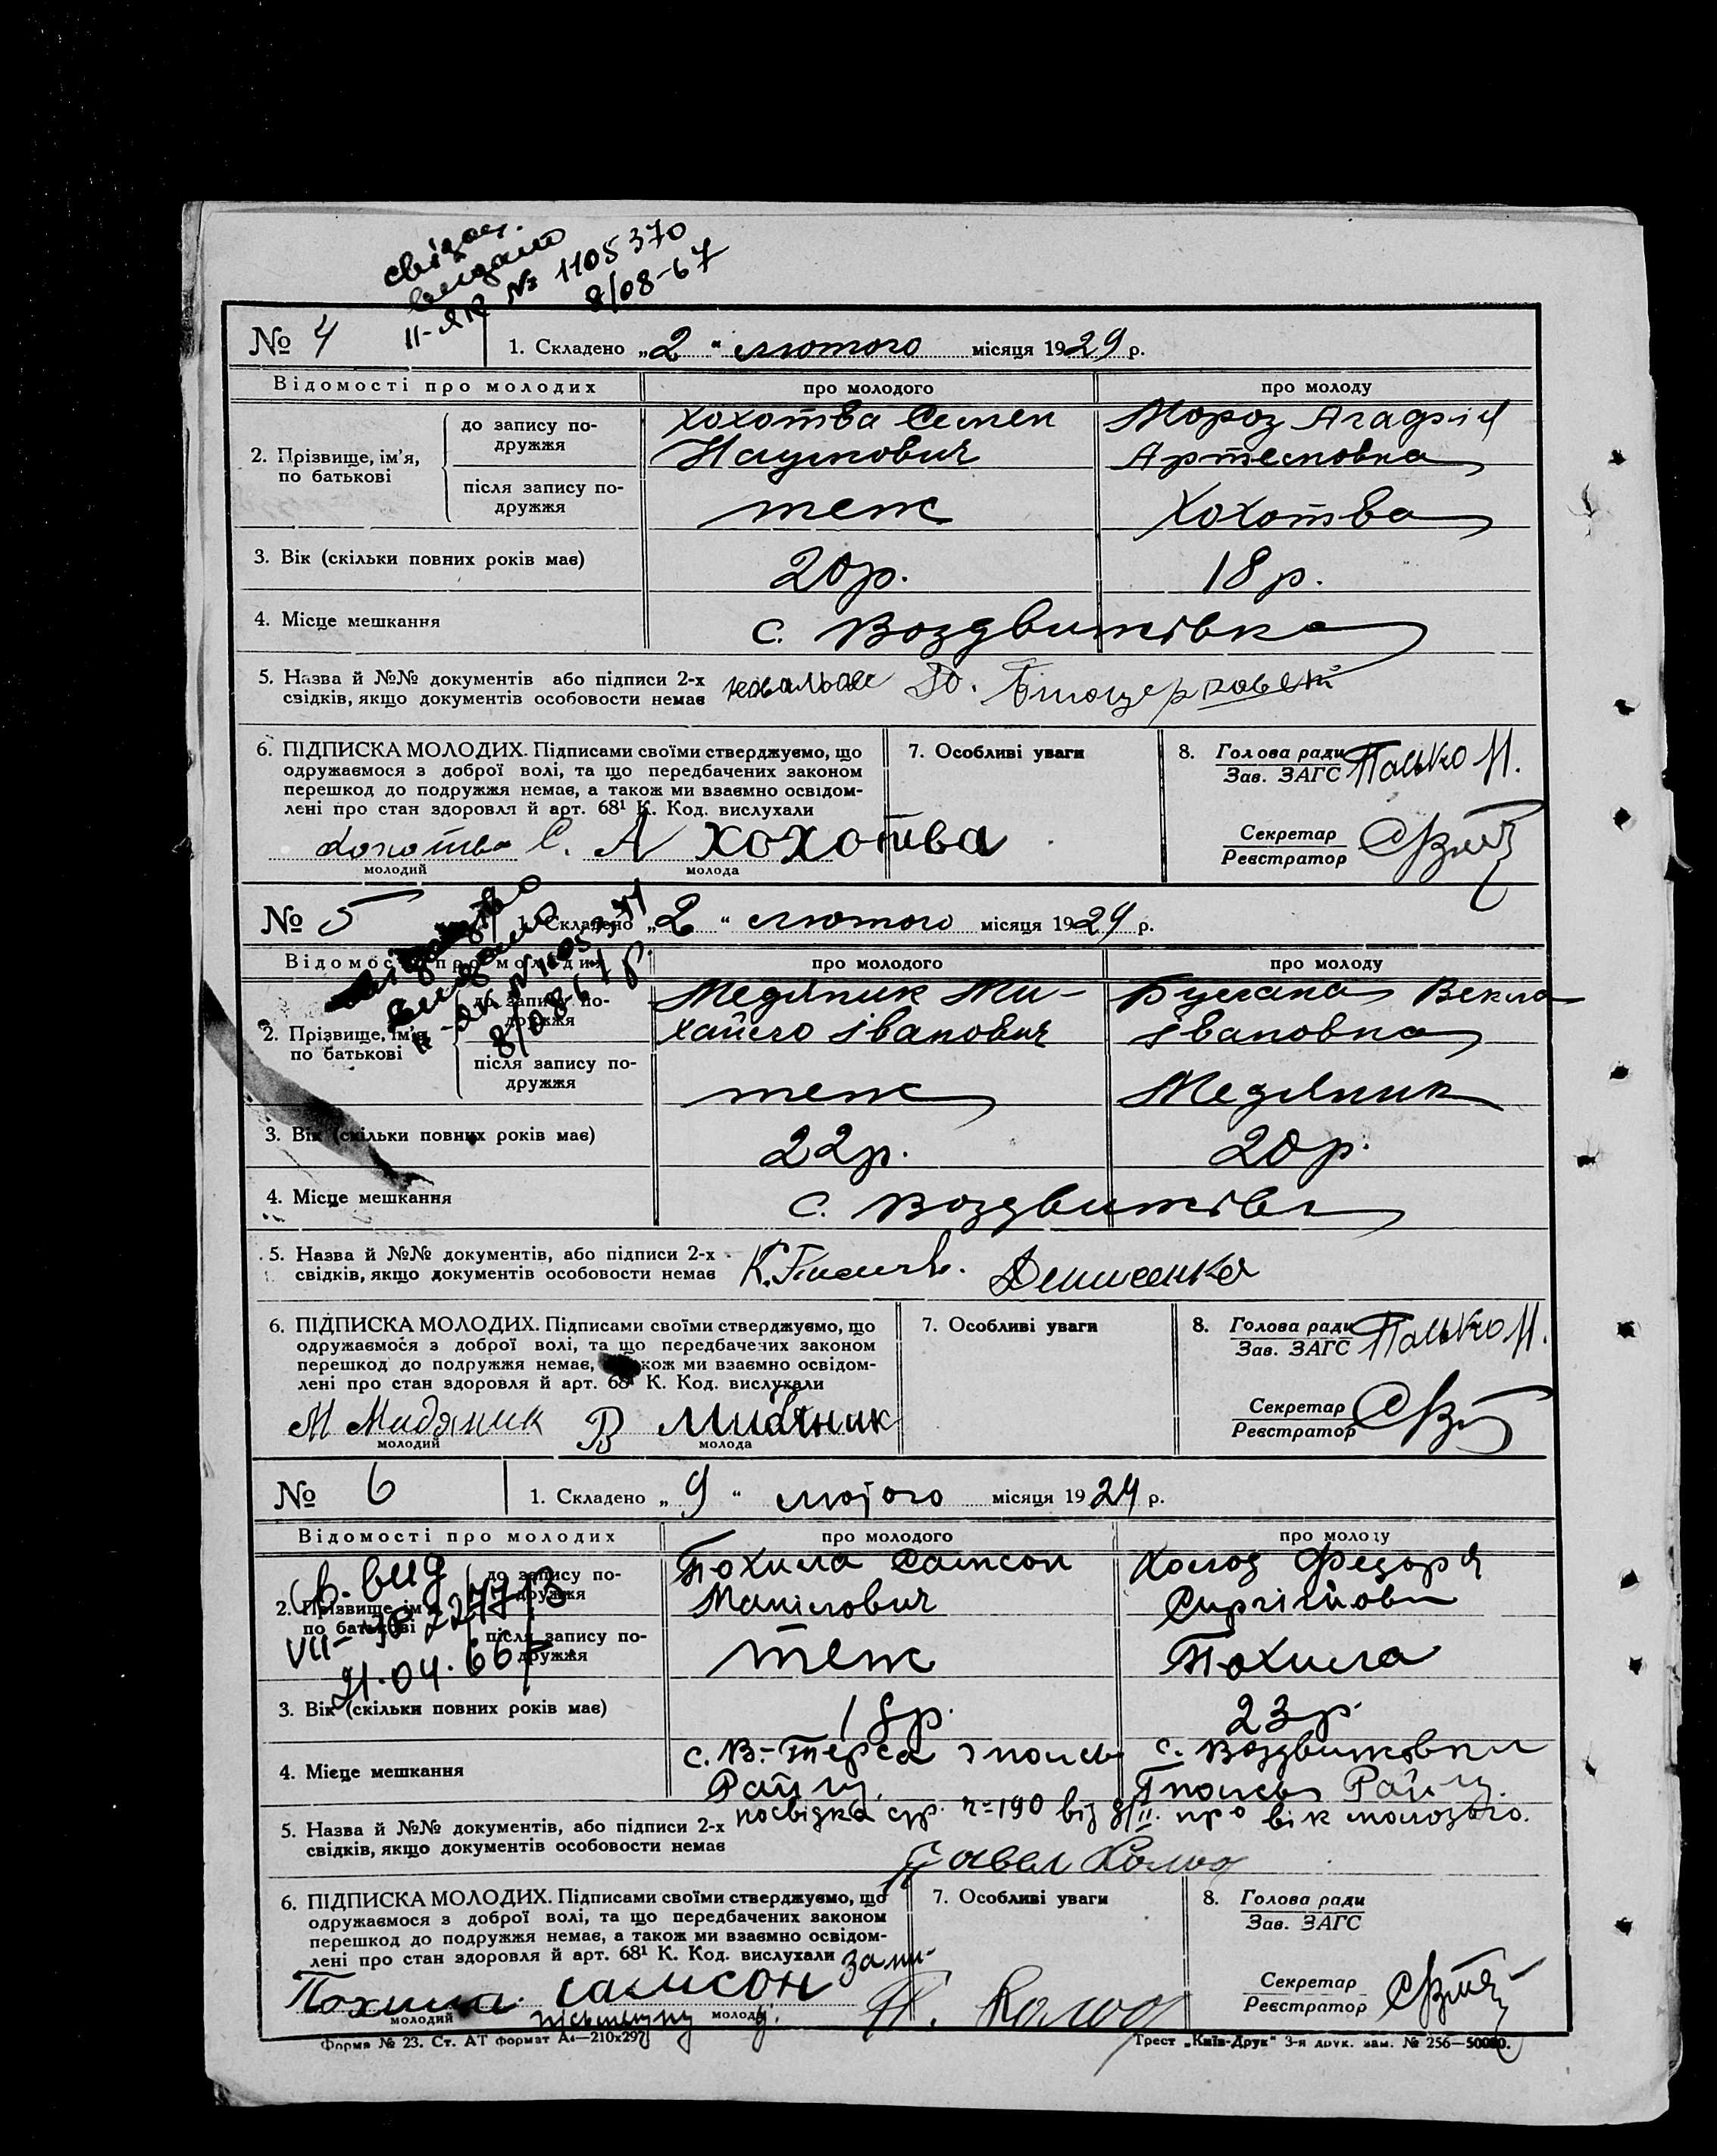 свідоц.
видано
II-ЯК № 1105370
8/08-67
№ 4
1. Складено „2“ лютого місяця 1929 р.
Відомості про молодих
про молодого
про молоду
2. Прізвище, ім’я, по батькові
до запису по-
дружжя
Хохотва Семен
Наумович
Мороз Агафія
Артемовна
після запису по-
дружжя
теж
Хохотва
3. Вік (скільки повних років має)
20 р.
18 р.
4. Місце мешкання
с. Воздвижівка
5. Назва й №№ документів або підписи 2-х
свідків, якщо документів особовости немає
6. ПІДПИСКА МОЛОДИХ. Підписами своїми стверджуємо, що
одружаємося з доброї волі, та що передбачених законом
перешкод до подружжя немає, а також ми взаємно освідом-
лені про стан здоровля й арт. 68¹ К. Код. вислухали
Хохотва С. А Хохотва
молодий
молода
7. Особливі уваги
8. Голова ради
Зав. ЗАГС
Секретар
Реєстратор
№ 5
видано
8/08 67 р.
1. Складено „2“ лютого місяця 1929 р.
Відомості про молодих
про молодого
про молоду
2. Прізвище, ім’я
по батькові
до запису по-
дружжя
Медяник Ми-
хайло Іванович
Векла
Івановна
після запису по-
дружжя
теж
Медяник
3. Вік (скільки повних років має)
22 р.
20 р.
4. Місце мешкання
с. Воздвижівка
5. Назва й №№ документів, або підписи 2-х
свідків, якщо документів особовости немає
6. ПІДПИСКА МОЛОДИХ. Підписами своїми стверджуємо, що
одружаємося з доброї волі, та що передбачених законом
перешкод до подружжя немає, а також ми взаємно освідом-
лені про стан здоровля й арт. 68¹ К. Код. вислухали
М Мидяник В Мидяник
молодий
молода
7. Особливі уваги
8. Голова ради
Зав. ЗАГС
Секретар
Реєстратор
№ 6
1. Складено „9“ лютого місяця 1929 р.
Відомості про молодих
про молодого
про молоду
21.04.66 р.
2. Прізвище ім’я
по батькові
до запису по-
дружжя
Похила Самсон
Манілович
Холод Федора
Сиргіївна
після запису по-
дружжя
теж
Похила
3. Вік (скільки повних років має)
18 р.
23 р.
4. Місце мешкання
с. В.-Терса
Району
с. Воздвижовки
Району
5. Назва й №№ документів, або підписи 2-х
свідків, якщо документів особовости немає
посвідка с/р. ч=190 від 9/II. про вік молодого.
Павел Холод
6. ПІДПИСКА МОЛОДИХ. Підписами своїми стверджуємо, що
одружаємося з доброї волі, та що передбачених законом
перешкод до подружжя немає, а також ми взаємно освідом-
лені про стан здоровля й арт. 68¹ К. Код. вислухали
Похила Самсон
П. Холод
молодий
молода
7. Особливі уваги
8. Голова ради
Зав. ЗАГС
Секретар
Реєстратор
Форма № 23. Ст. АТ формат А₄—210х297
Трест „Київ-Друк“ 3-я друк. зам. № 256—50000.